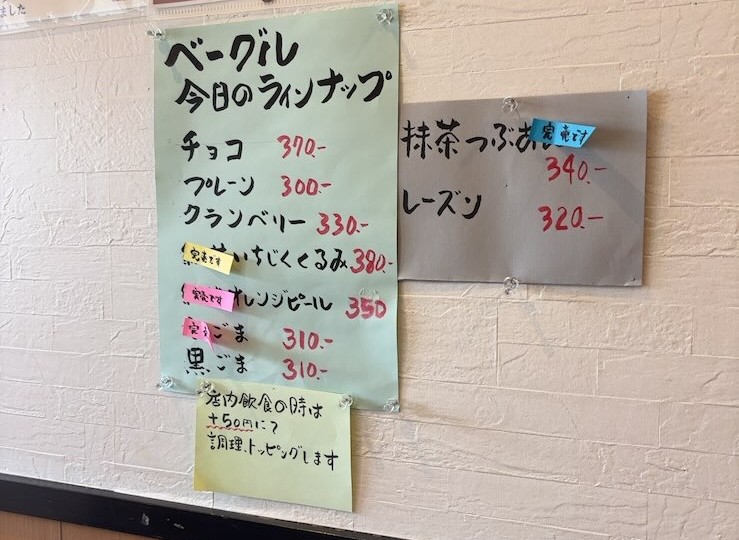 ました
ベーグル
今日のラインナップ
チョコ 370.-
プレーン 300.-
クランベリー 330.-
完売です いちじくくるみ 380.-
完売です オレンジピール 350
完売 ごま 310.-
黒ごま 310.-
店内飲食の時は
+50円にて
調理、トッピングします
抹茶つぶあ 完売です
340.-
レーズン 320.-